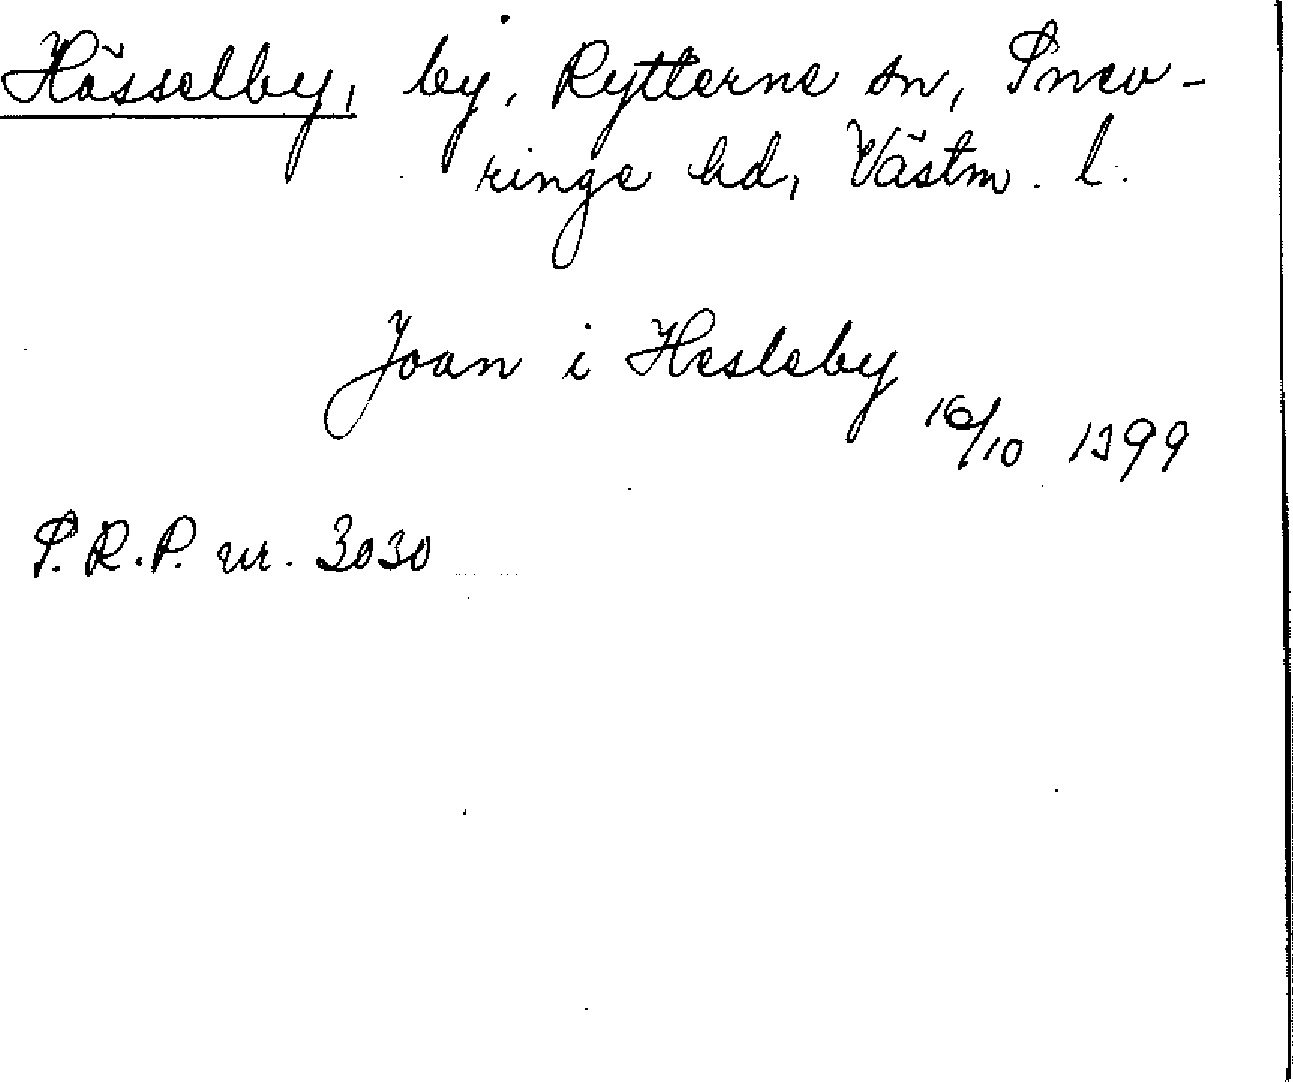 Hässelby, by, Rytterne sn, Snev-
ringe hd, Västm. l.
Joan i Hesleby
16/10 1399
S.R.P. nr. 3030